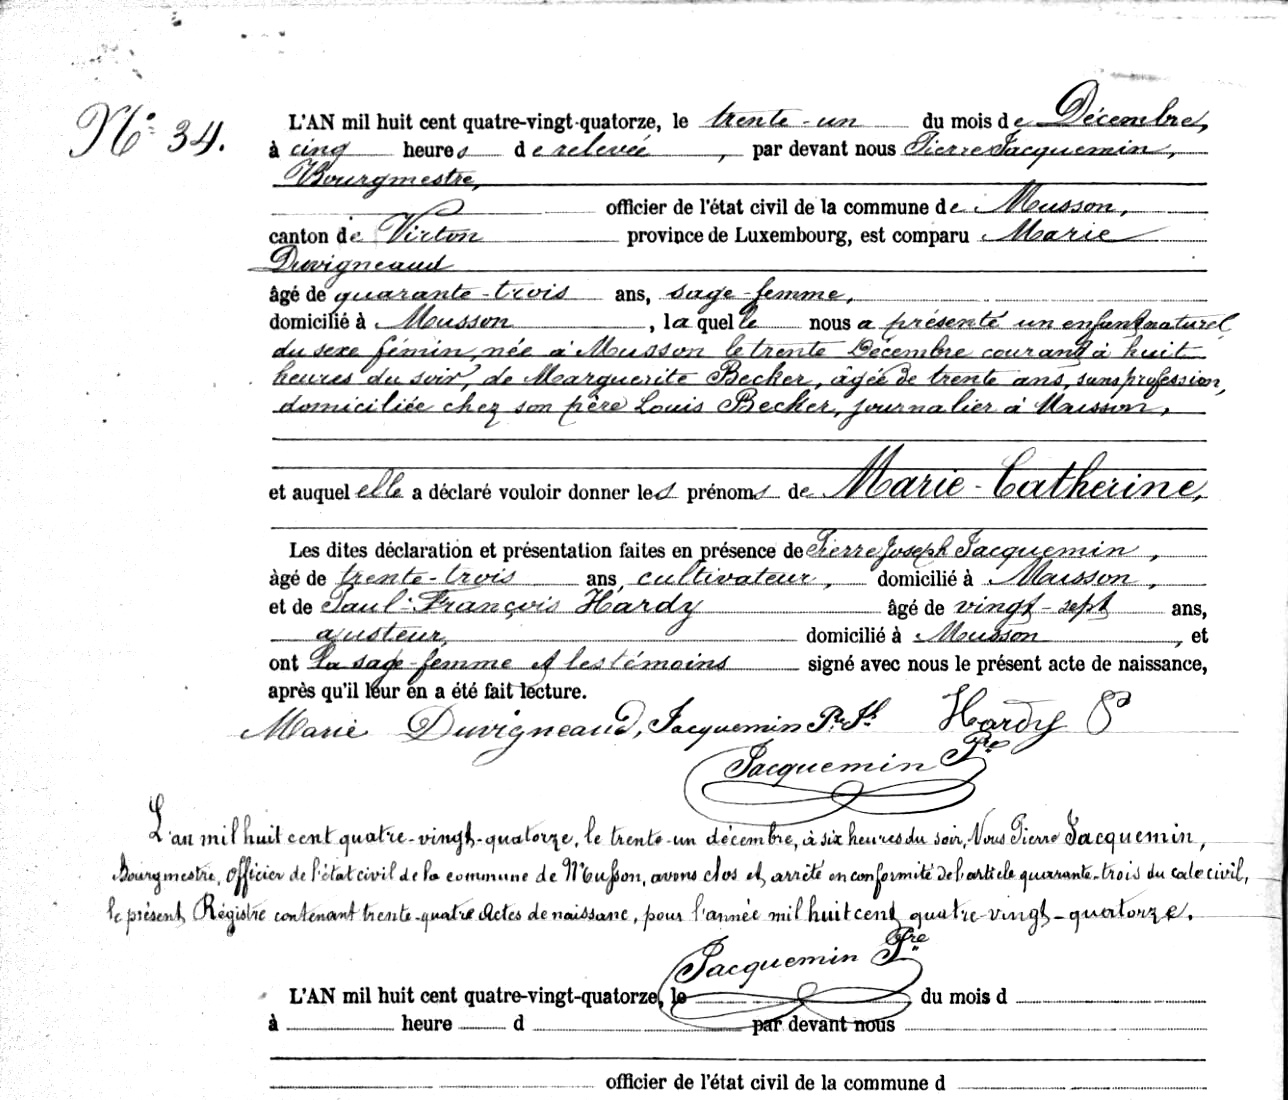 N° 34.
L'AN mil huit cent quatre-vingt-quatorze, le trente-un du mois de Décembre,
à cinq heures de relevée, par devant nous Pierre Jacquemin,
Bourgmestre,
officier de l'état civil de la commune de Musson,
canton de Virton province de Luxembourg, est comparu Marie
Duvigneaud
âgé de quarante-trois ans, sage-femme,
domicilié à Musson, laquelle nous a présenté un enfant naturel
du sexe fémin, née à Musson le trente Décembre courant à huit
heures du soir, de Marguerite Becker, âgée de trente ans, sans profession,
domiciliée chez son père Louis Becker, journalier à Musson,
et auquel elle a déclaré vouloir donner les prénoms de Marie-Catherine,
Les dites déclaration et présentation faites en présence de Pierre Joseph Jacquemin,
àgé de trente-trois ans, cultivateur, domicilié à Musson,
et de Paul-François Hardy âgé de vingt-sept ans,
ajusteur, domicilié à Musson, et
ont la sage-femme et les témoins signé avec nous le présent acte de naissance,
après qu'il leur en a été fait lecture.
Marie Duvigneaud, Jacquemin Pre Jh. Hardy P
Jacquemin Pre
L'an mil huit cent quatre-vingt-quatorze, le trente-un décembre, à six heures du soir, Nous Pierre Jacquemin,
Bourgmestre, Officier de l'état civil de la commune de Musson, avons clos et arrêté en conformité de l'article quarante-trois du code civil,
le présent Régistre contenant trente-quatre Actes de naissanc, pour l'année mil huit cent quatre-vingt-quatorze.
Jacquemin Pre
L'AN mil huit cent quatre-vingt-quatorze, le du mois d
à heure d par devant nous
officier de l'état civil de la commune d